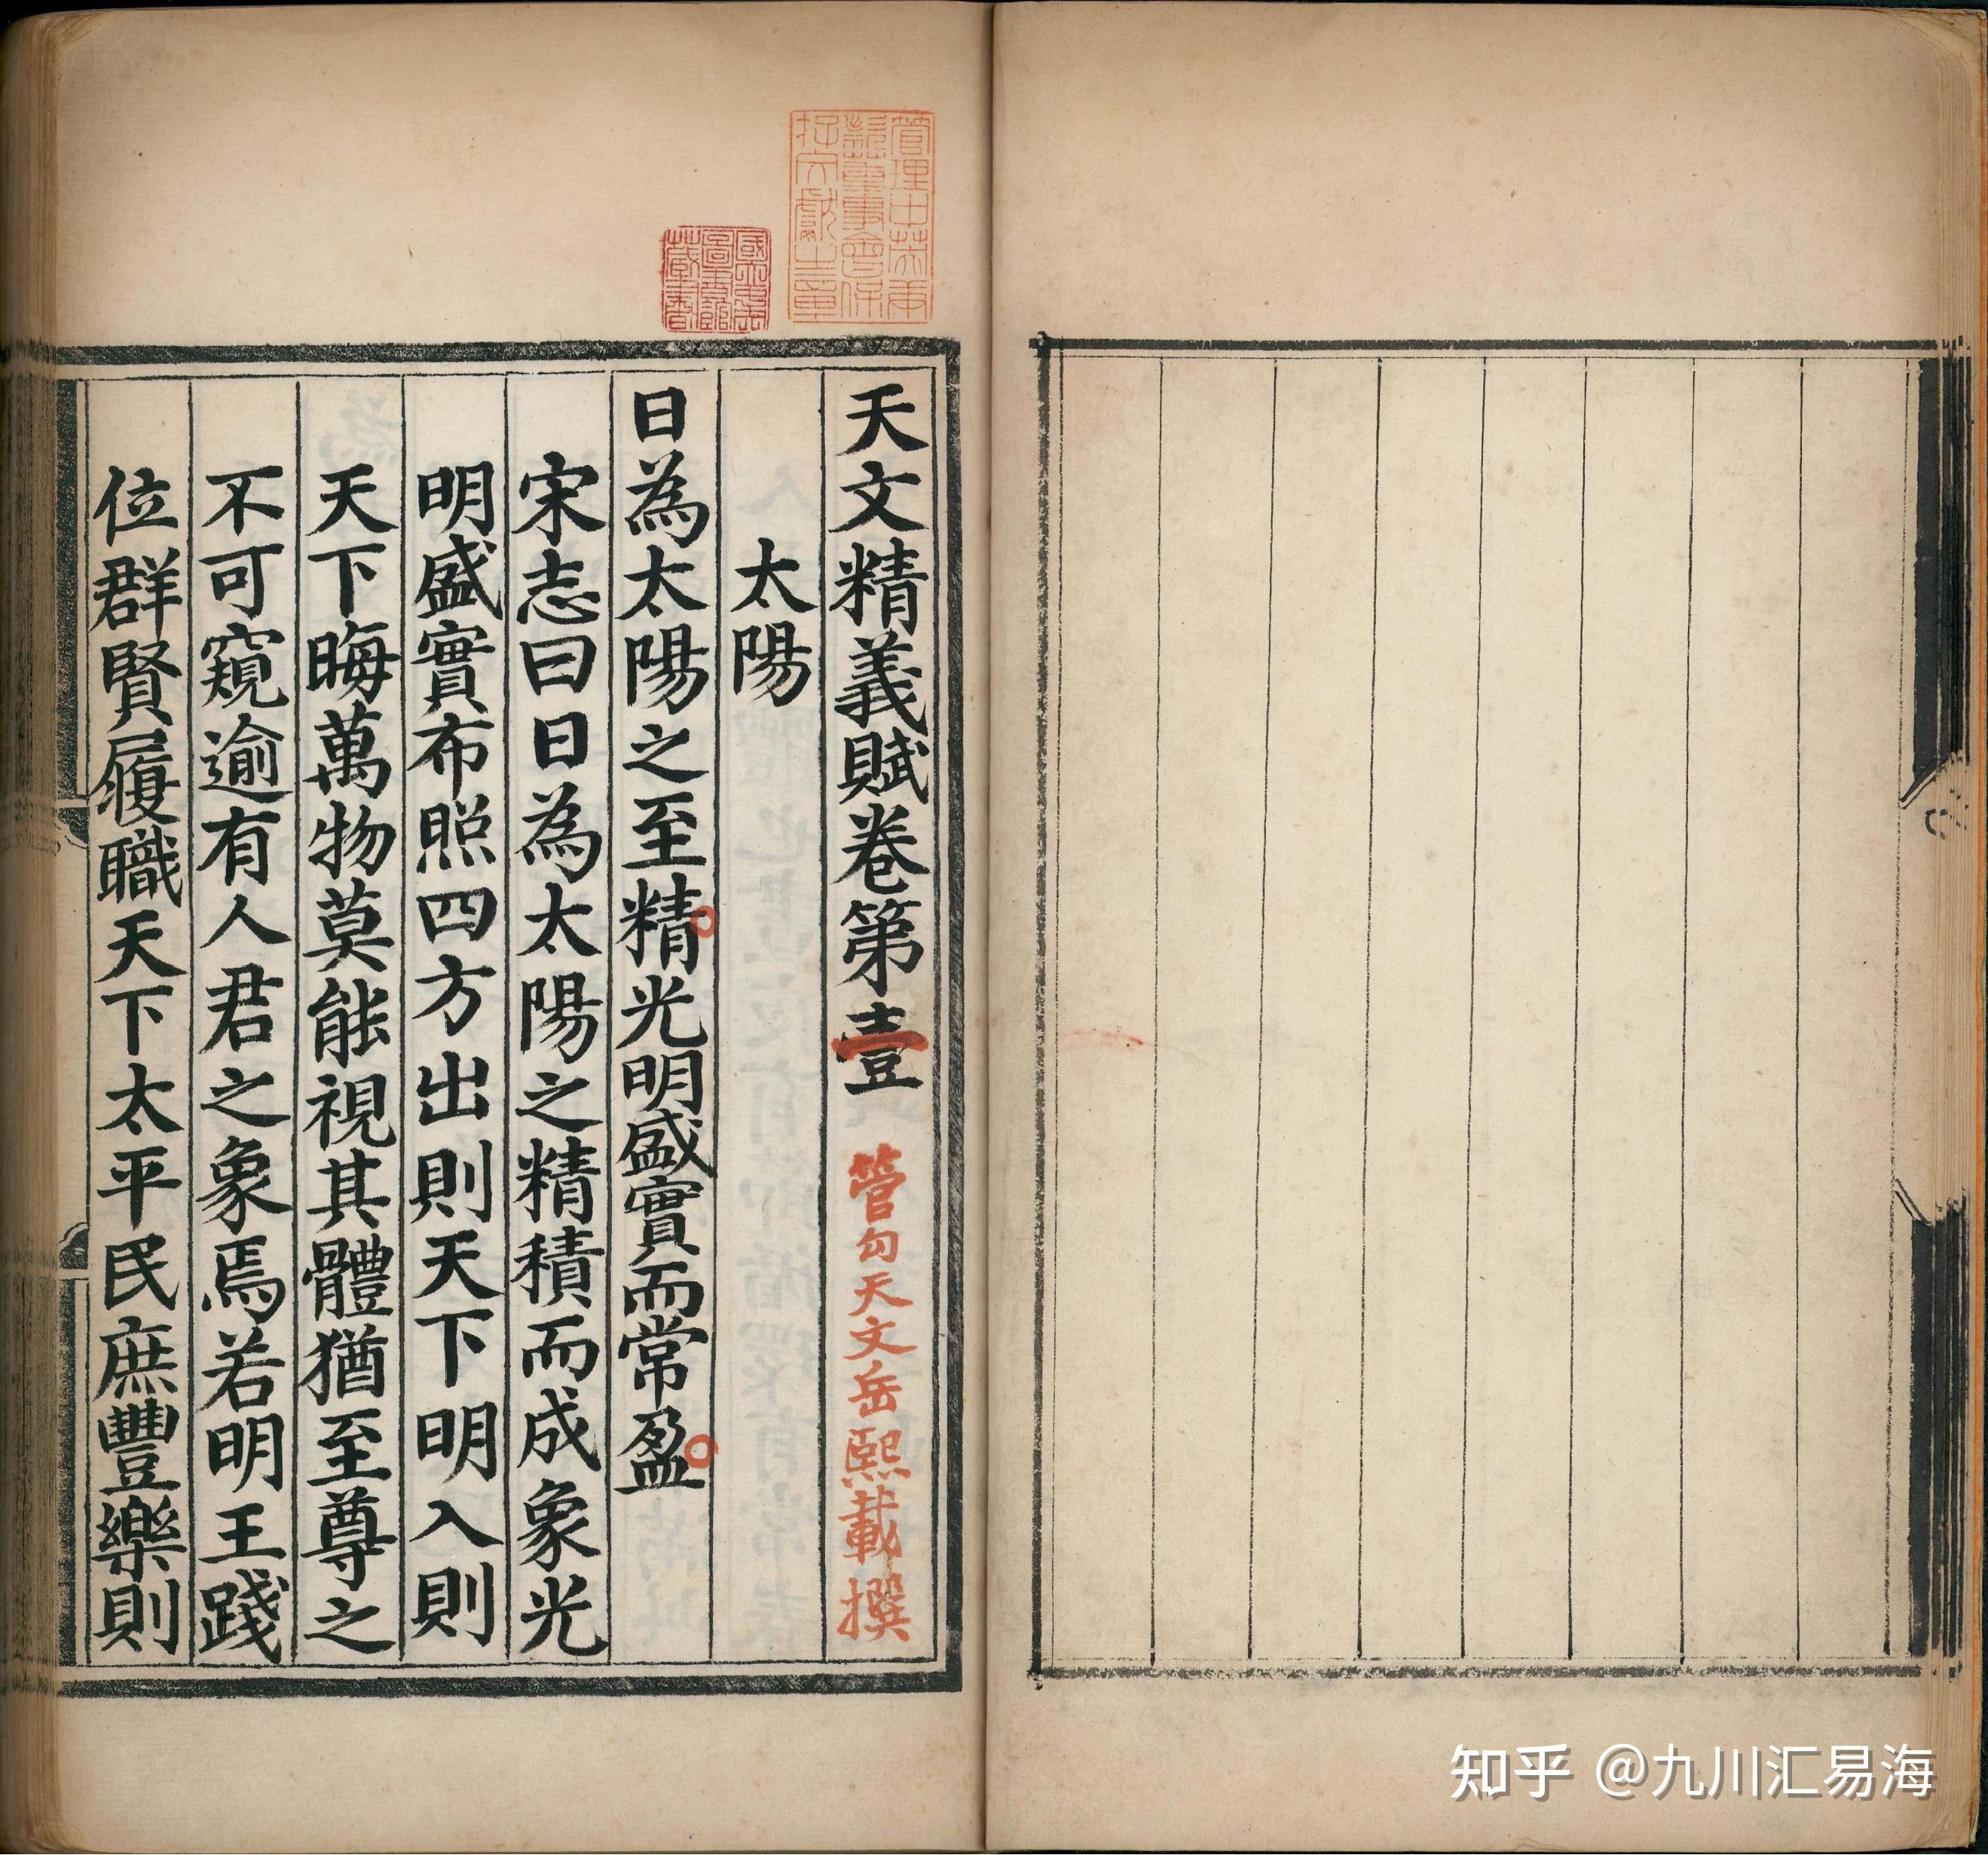 天文精義賦卷第壹 管勾天文岳熙載撰
太陽
日為太陽之至精光明盛實而常盈
宋志曰日為太陽之精積而成象光
明盛實布照四方出則天下明入則
天下晦萬物莫能視其體猶至尊之
不可窺逾有人君之象焉若明王踐
位群賢履職天下太平民庶豐樂則
管理中英庚
款董事會保
存文獻之章
國立中央
圖書館
藏書
知乎 @九川汇易海